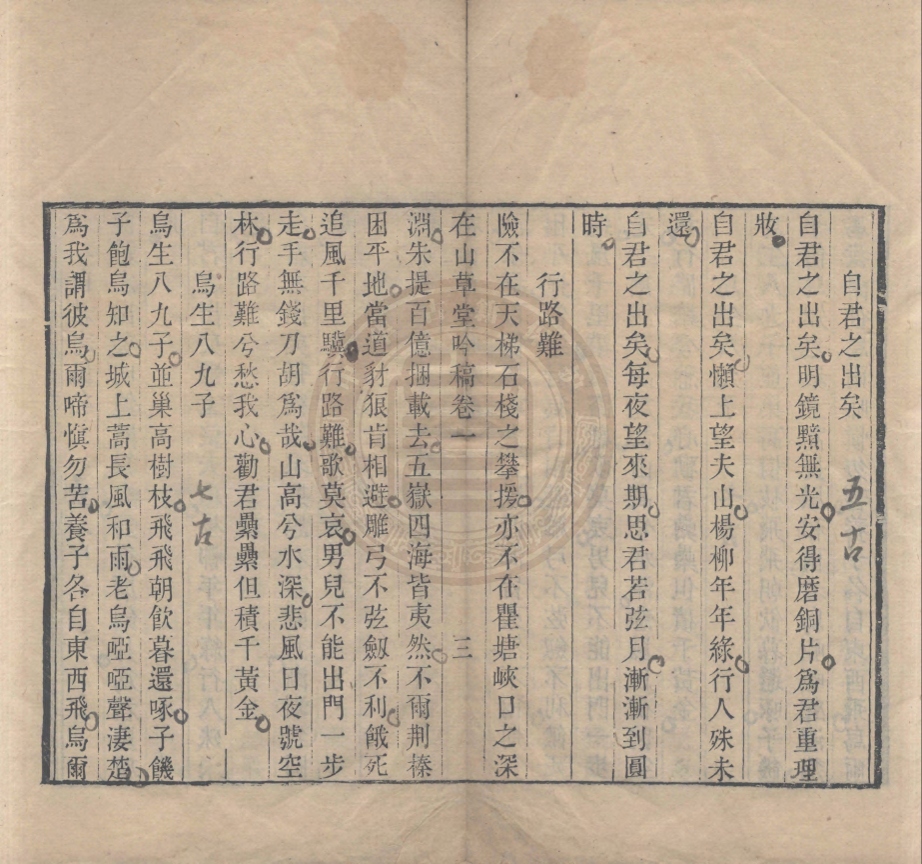 自君之出矣 五古
自君之出矣明鏡黯無光安得磨銅片爲君重理
妝
自君之出矣懶上望夫山楊柳年年綠行人殊未
還
自君之出矣每夜望來期思君若弦月漸漸到圓
時
行路難
險不在天梯石棧之攀援亦不在瞿塘峽口之深
在山草堂吟稿卷一 三
淵朱提百億捆載去五嶽四海皆夷然不雨荆榛
困平地當道豺狼肯相避雕弓不弦劔不利餓死
追風千里驥行路難歌莫哀男兒不能出門一步
走手無錢刀胡爲哉山高兮水深悲風日夜號空
林行路難兮愁我心勸君纍纍但積千黃金
烏生八九子 七古
烏生八九子並巢高樹枝飛飛朝飲暮還啄子饑
子飽烏知之城上蒿長風和雨老烏啞啞聲淒楚
爲我謂彼烏爾啼愼勿苦養子各自東西飛烏爾